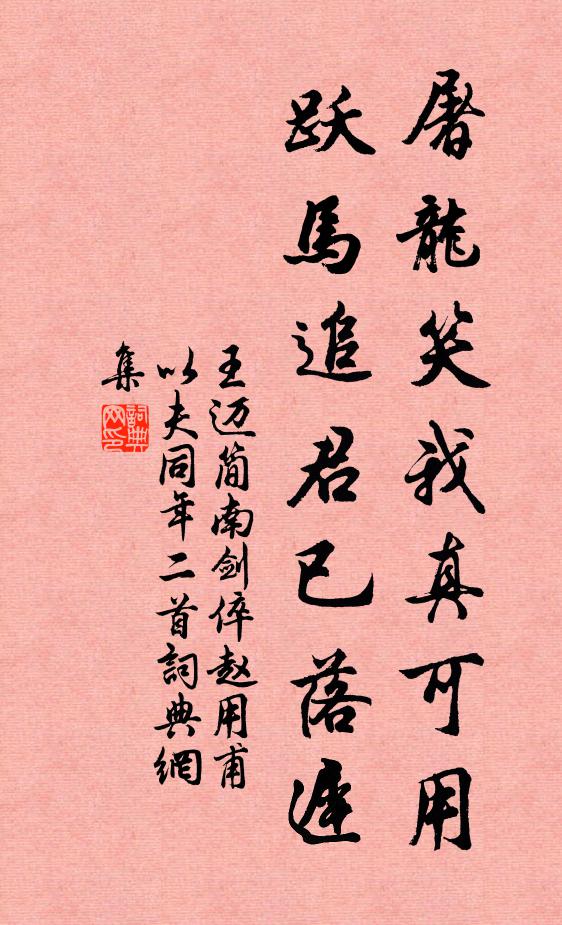 屠龍笑我真可用
跃馬追君已落遲
王迈简南劍倅赵用甫
以夫同年二首詞典網
集
詞典
网印